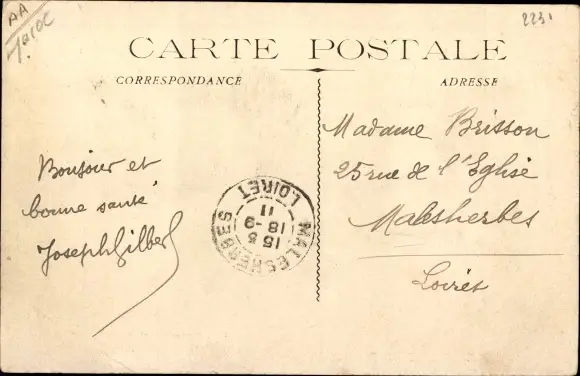 AA
Maroc
2231
CARTE POSTALE
CORRESPONDANCE
ADRESSE
Bonjour et
bonne santé
Joseph Gilbert
Madame Brisson
25 rue de l'Eglise
Malesherbes
Loiret
MALESHERBES
15 5
18-9
11
LOIRET